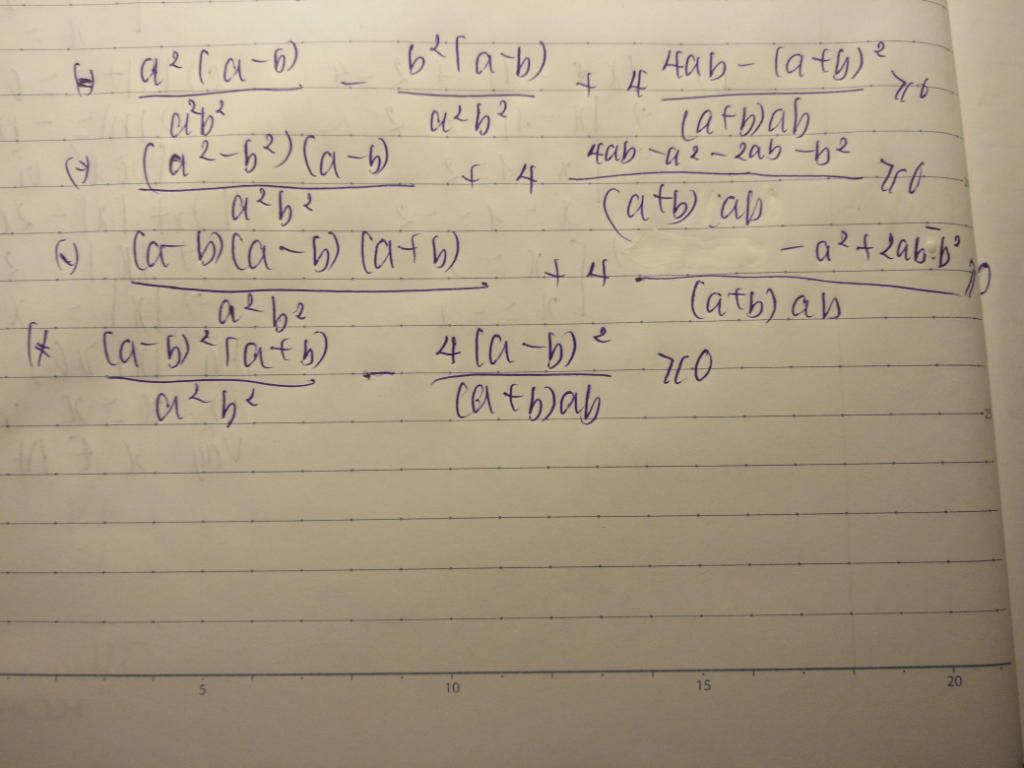 (⇔) a²(a-b)/a²b² - b²(a-b)/a²b² + 4 4ab-(a+b)²/(a+b)ab ≥0
(⇔) (a²-b²)(a-b)/a²b² + 4 4ab-a²-2ab-b²/(a+b)ab ≥0
(⇔) (a-b)(a-b)(a+b)/a²b² + 4 -a²+2ab-b²/(a+b)ab ≥0
(⇔ (a-b)²(a+b)/a²b² - 4(a-b)²/(a+b)ab ≥0
5 10 15 20